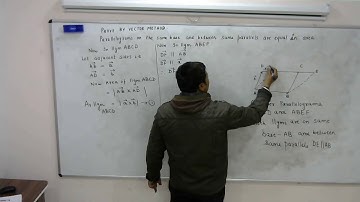 Prove by vector method
Parallelograms on the same base and between same parallels are equal in area
Now In llgm ABCD
Let adjacent sides be
AB = a
AD = b
Now Area of llgm ABCD
= |a x b|
As llgm ABCD = |a x b| → ①
Now In llgm ABEF
DF || AB
DF || a
D
C
E
A
B
Parallelograms
ABEF
llgms are on same
base AB and between
same parallels DE||AB